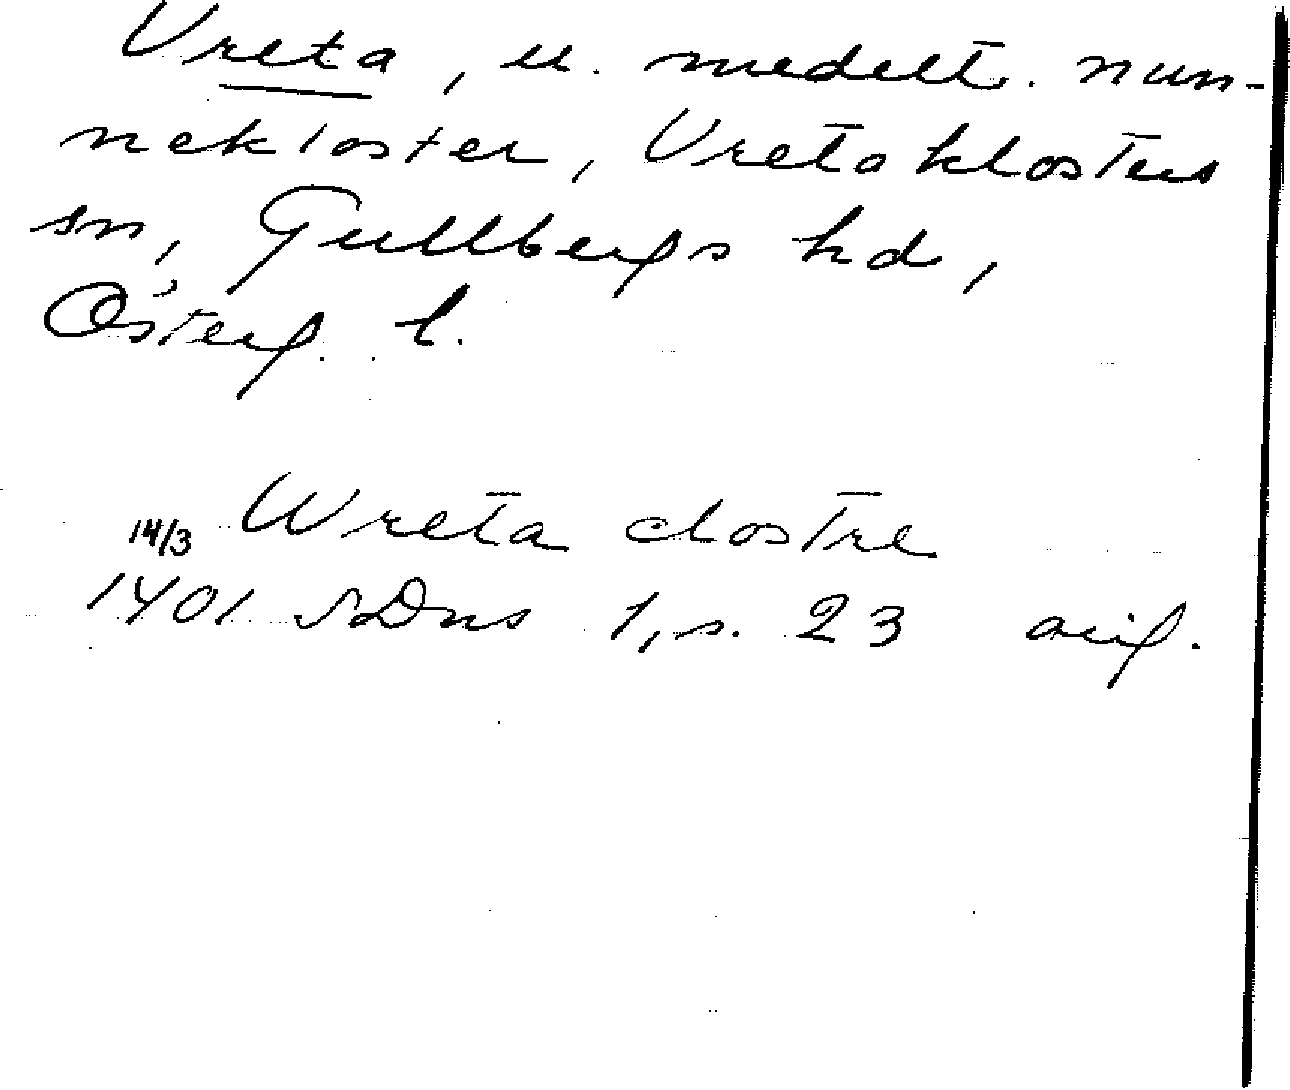 Vreta, u. medelt. nun-
nekloster, Vreta klosters
sn, Gullbergs hd,
Österg. l.
14/3 Wreta clostre
1401 SDns 1, s. 23 orig.